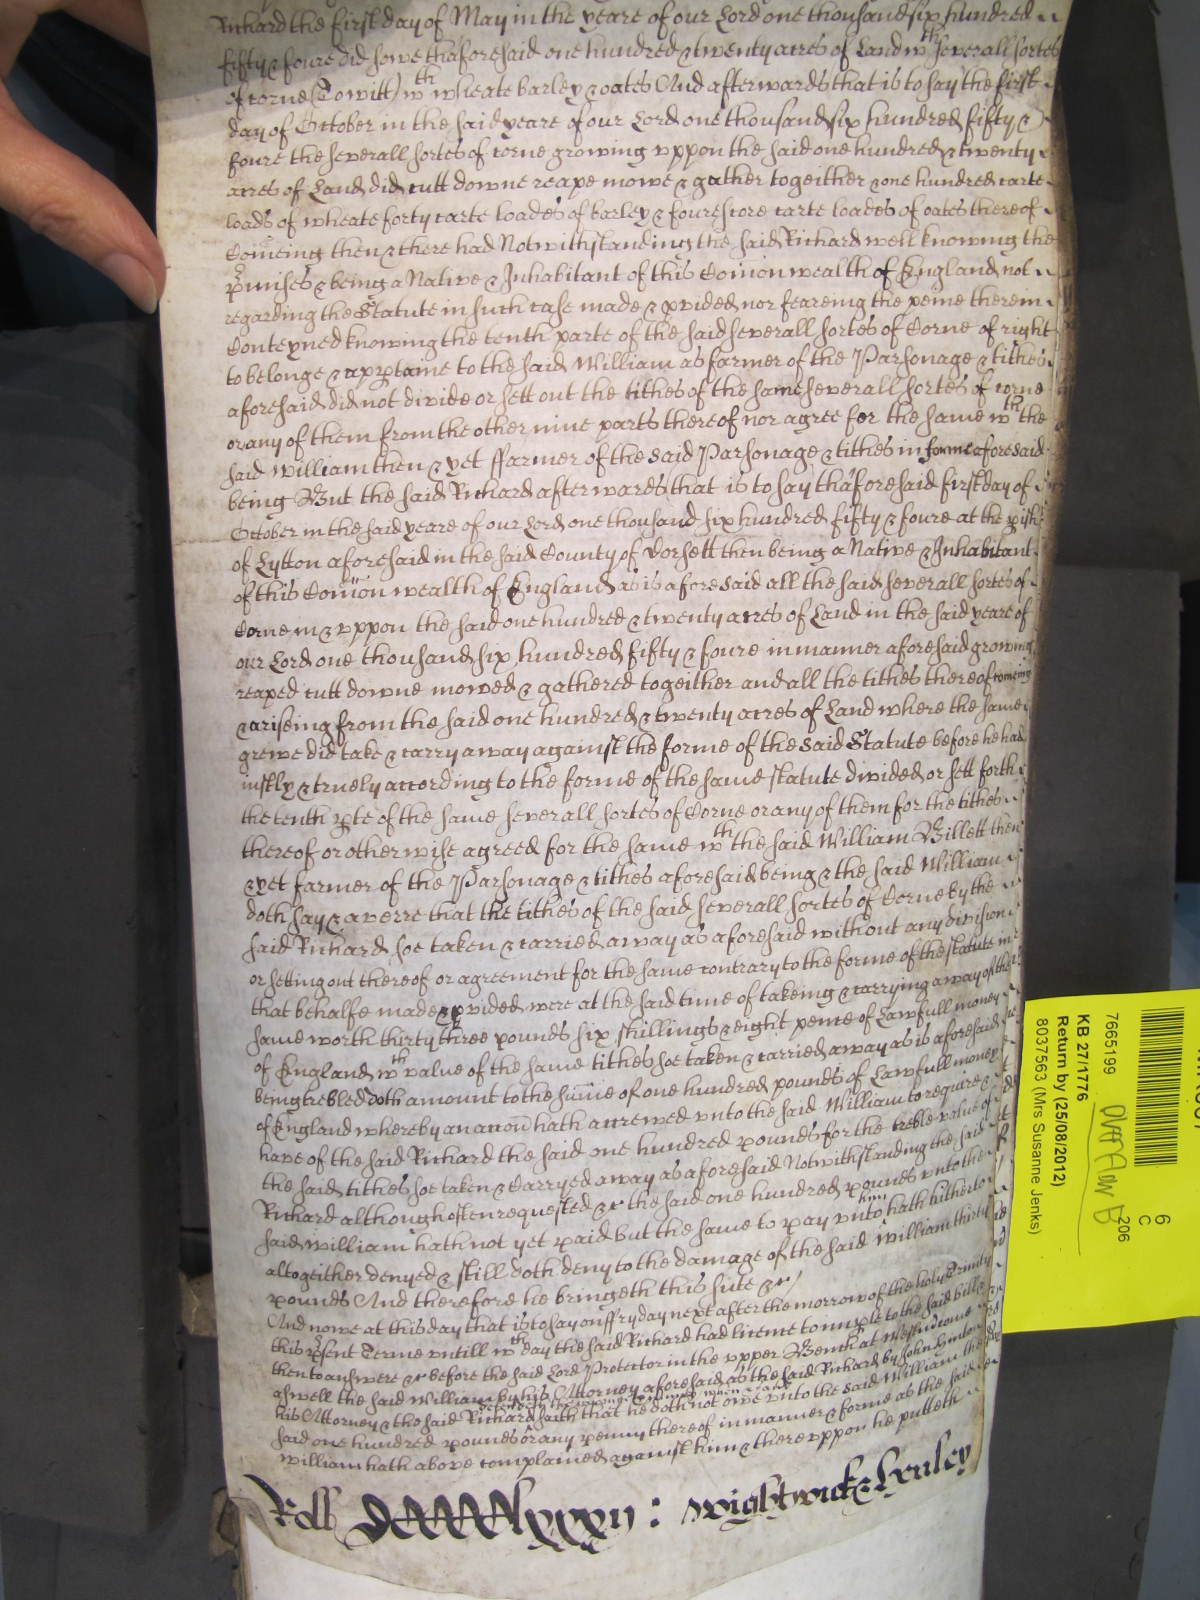 Richard the first day of May in the yeare of our Lord one thousand six hundred
fifty & foure did sowe thaforesaid one hundred & twenty acres of Land wth severall sortes
of corne (Towitt) wth wheate barley & oates And afterwards that is to say the first
day of October in the said yeare of our Lord one thousand six hundred fifty &
foure the severall sortes of corne growing vppon the said one hundred & twenty
acres of Land did cutt downe reape mowe & gather togeither & one hundred carte
loads of wheate forty carte loades of barley & fourescore carte loades of oates thereof
Comeing then & there had Notwithstanding the said Richard well knowing the
pmises & being a Native & Inhabitant of this Comon wealth of England not
regarding the Statute in such case made & pvided nor feareing the peine therein
Conteyned knowing the tenth parte of the said severall sortes of Corne of right
to belonge & apptaine to the said William as farmer of the Parsonage & tithes
aforesaid did not divide or sett out the tithes of the same severall sortes of corne
or any of them from the other nine parts thereof nor agree for the same wth the
said William then & yet ffarmer of the said Parsonage & tithes in forme aforesaid
being But the said Richard afterwards that is to say thaforesaid first day of
October in the said yeare of our Lord one thousand six hundred fifty & foure at the pish
of Lytton aforesaid in the said County of Dorsett then being a Native & Inhabitant
of this Comon wealth of England as is aforesaid all the said severall sortes of
Corne in & vppon the said one hundred & twenty acres of Land in the said yeare of
our Lord one thousand six hundred fifty & foure in manner aforesaid growing
reaped cutt downe mowed & gathered togeither and all the tithes thereof comeing
& ariseing from the said one hundred & twenty acres of Land where the same
grewe did take & carry away against the forme of the said Statute before he had
iustly & truely according to the forme of the same statute divided or sett forth
the tenth pte of the same severall sortes of Corne or any of them for the tithes
thereof or otherwise agreed for the same wth the said William Billett then
& yet farmer of the Parsonage & tithes aforesaid being & the said William
doth say & averre that the tithes of the said severall sortes of Corne by the
said Richard soe taken & carried away as aforesaid without any division
or setting out thereof or agreement for the same contrary to the forme of the statute in
that behalfe made & pvided were at the said time of takeing & carrying away of the
same worth thirty three pounds six shillings & eight pence of Lawfull money
of England wth value of the same tithes soe taken & carried away as is aforesaid
being trebled doth amount to the sume of one hundred pounds of Lawfull money
of England whereby an accon hath accrewed vnto the said William to require &
have of the said Richard the said one hundred pounds for the treble value of
the said tithes soe taken & Carryed away as aforesaid Notwithstanding the said
Richard although often requested &c the said one hundred pounds vnto the
said William hath not yet paid but the same to pay vnto him hath hitherto
altogeither denyed & still doth deny to the damage of the said William thirty
pounds And therefore he bringeth this sute &c
And nowe at this day that is to say on ffryday next after the morrow of the holy Trinity
this psent Terme vntill wth day the said Richard had licence to imparle to the said bill &
then to answere &c before the said Lord Protector in the vpper Bench at Westm come
aswell the said William by his Attorney aforesaid as the said Richard by John
his Attorney & the said Richard defendeth the wronge & iniury when &c and saith that he doth not owe vnto the said William the
said one hundred pounds or any penny thereof in manner & forme as the said
William hath above complained against him & therevppon he putteth
Roll Wightwicke & Henley
7665199
KB 27/1776
Return by (25/08/2012)
8037563 (Mrs Susanne Jenks)
6
C
206